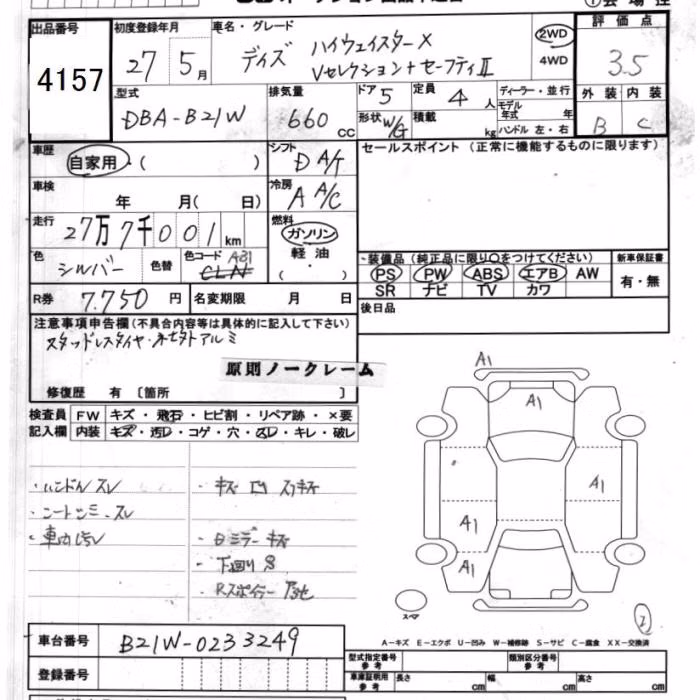 出品番号
4157
初度登録年月
27 5月
車名・グレード
デイズ ハイウェイスターX
Vセレクション+セーフティII
2WD
4WD
評価点
3.5
外装 内装
B C
型式
DBA-B21W
排気量
660 cc
ドア 5
定員 4 人
形状 W/G
積載 kg
ディーラー・並行
モデル年式 年
ハンドル 左・右
車歴
自家用・( )
シフト
D A/T
車検
年 月( 日)
冷房
A A/C
走行
27万7千001km
燃料
ガソリン
軽油
( ・ )
色
シルバー
色替
色コード A81
CLN
R券 7.750 円
名変期限 月 日
セールスポイント(正常に機能するものに限ります)
装備品(純正品に限り○をつけてください)
PS PW ABS エアB AW
SR ナビ TV カワ
新車保証書
有・無
後日品
注意事項申告欄(不具合内容等は具体的に記入して下さい)
スタッドレスタイヤ・
アルミ
原則ノークレーム
修復歴 有〔箇所 〕
検査員 FW キズ・飛石・ヒビ割・リペア跡・×要
記入欄 内装 キズ・汚レ・コゲ・穴・スレ・キレ・破レ
・ハンドルスレ
・スレ
・車内汚レ
・キズ 凹 スリキズ
・ミラーキズ
・下廻りS
・Rスポイラー
A1
A1
A1
A1
A1
スペア
2
A-キズ E-エクボ U-凹み W-補修跡 S-サビ C-腐食 XX-交換済
車台番号
B21W-0233249
登録番号
型式指定番号
参考
類別区分番号
参考
車庫証明用
参考
長さ cm 幅 cm 高さ cm